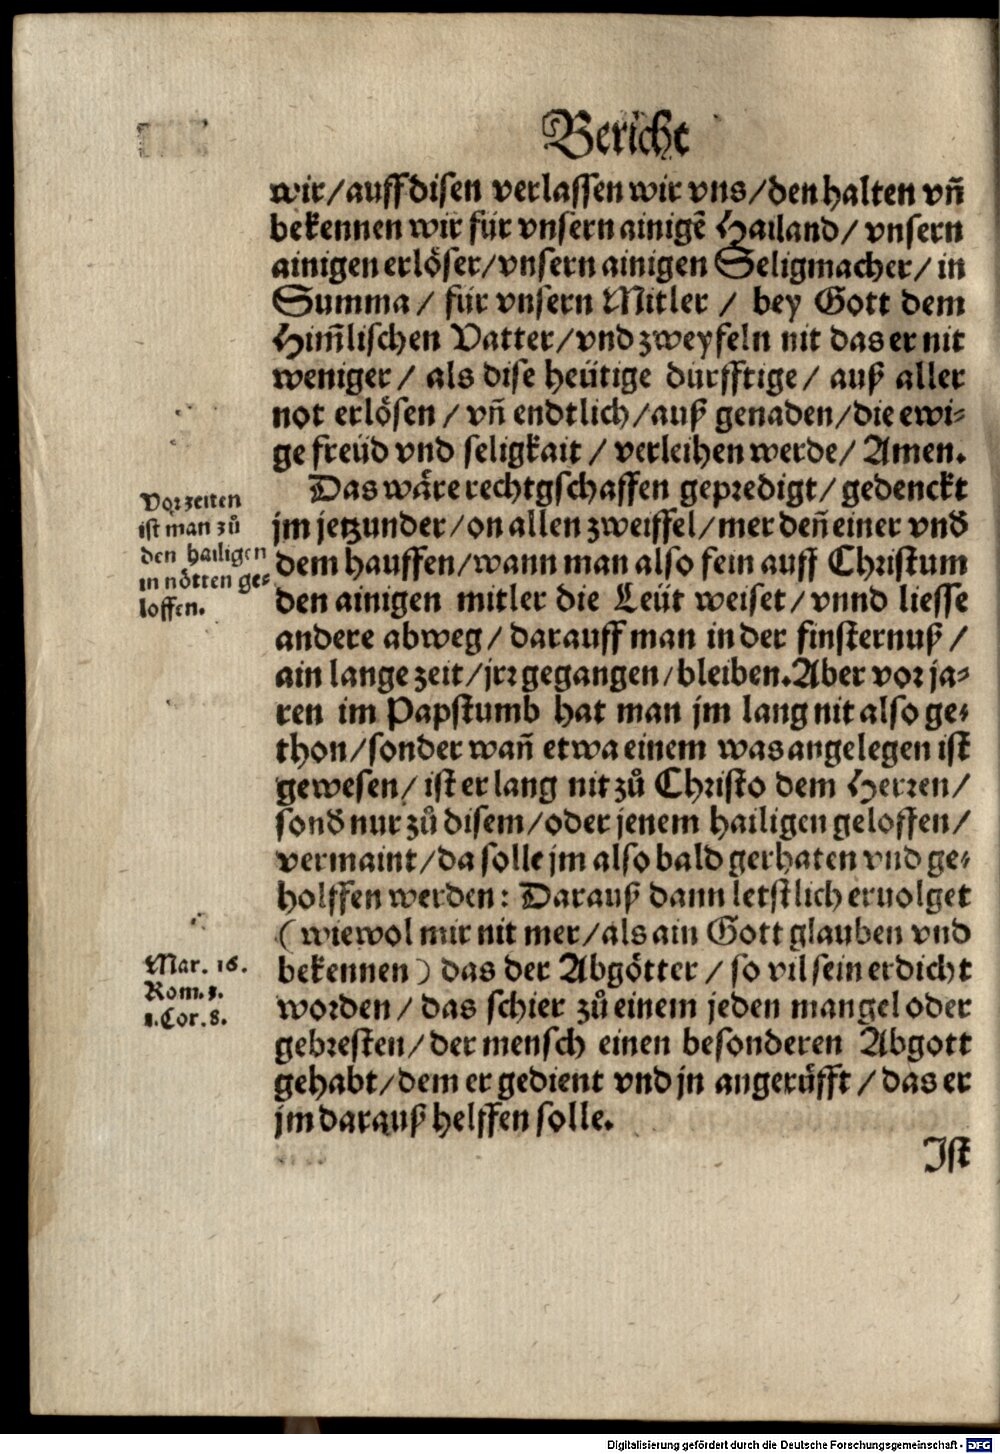 Bericht
wir/auff disen verlassen wir vns/den halten vñ
bekennen wir für vnsern ainigẽ Hailand/ vnsern
ainigen erlöser/vnsern ainigen Seligmacher/ in
Summa/ für vnsern Mitler / bey Gott dem
Him̃lischen Vatter/vnd zweyfeln nit das er nit
weniger/ als dise heütige dürfftige/ auß aller
not erlösen/ vñ endtlich/auß genaden/die ewi-
ge freüd vnd seligkait / verleihen werde/ Amen.
Das wäre rechtgschaffen geprediget/ gedenckt
jm jetzunder/on allen zweiffel/mer deñ einer vnd
dem hauffen/wann man also fein auff Christum
den ainigen mitler die Leüt weiset/ vnnd liesse
andere abweg/ darauff man in der finsternuß /
ain lange zeit/jrr gegangen/bleiben. Aber vor ja-
ren im Papstumb hat man jm lang nit also ge-
thon/sonder wañ etwa einem was angelegen ist
gewesen/ ist er lang nit zů Christo dem Herren/
sond nur zů disem/oder jenem hailigen geloffen/
vermaint/da solle jm also bald gerhaten vnd ge-
holffen werden: Darauß dann letstlich eruolget
( wiewol mir nit mer/als ain Gott glauben vnd
bekennen) das der Abgötter/ so vil sein erdicht
worden/ das schier zů einem jeden mangel oder
gebresten/der mensch einen besonderen Abgott
gehabt/dem er gedient vnd jn angerüfft/das er
jm darauß helffen solle.
Vorzeiten
ist man zů
den hailigen
in nötten ge-
loffen.
Mar. 16.
Rom. 3.
1. Cor. 8.
Ist
Digitalisierung gefördert durch die Deutsche Forschungsgemeinschaft - DFG